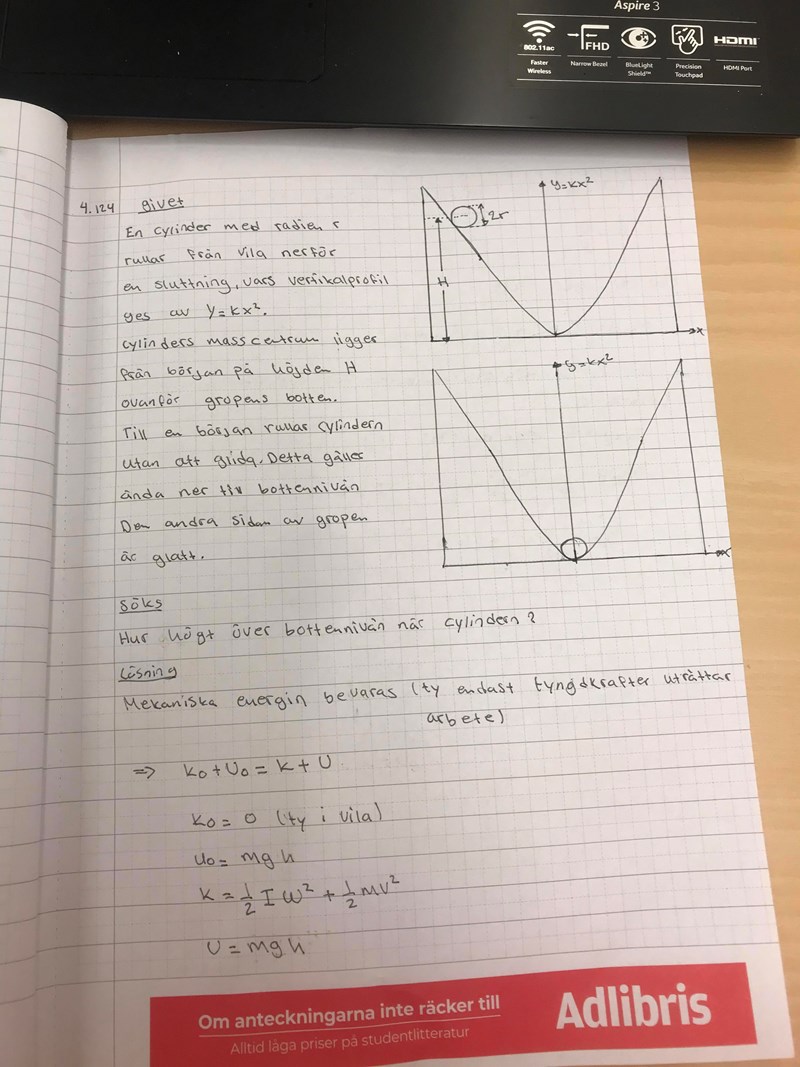 Aspire 3
802.11ac
FHD
HDMI
Faster Wireless
Narrow Bezel
BlueLight Shield™
Precision Touchpad
HDMI Port
4.124 givet
En cylinder med radien r
rullar från vila nerför
en sluttning, vars vertikalprofil
ges av y=kx².
cylinders masscentrum ligger
från början på höjden H
ovanför gropens botten.
Till en början rullar cylindern
utan att glida. Detta gäller
ända ner till bottennivån
Den andra sidan av gropen
är glatt.
y=kx²
2r
H
x
y=kx²
x
Söks
Hur högt över bottennivån når cylindern?
Lösning
Mekaniska energin bevaras (ty endast tyngdkrafter uträttar
arbete)
=> K₀+U₀ = K+U
K₀ = 0 (ty i vila)
U₀ = mgh
K = 1/2 I ω² + 1/2 mv²
U = mgh
Om anteckningarna inte räcker till
Alltid låga priser på studentlitteratur
Adlibris